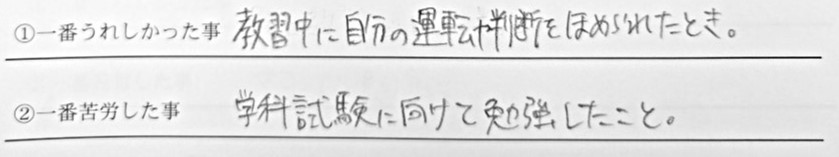 ①一番うれしかった事 教習中に自分の運転や判断をほめられたとき。
②一番苦労した事 学科試験に向けて勉強したこと。